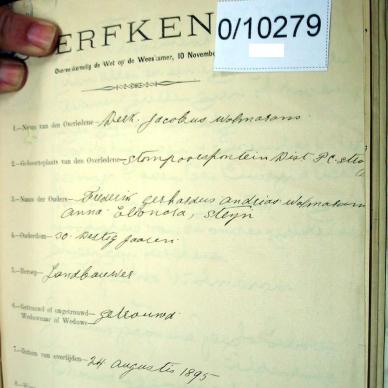 ERFKEN
0/10279
Overeenkomstig de Wet op de Weeskamer, 10 November
1.—Naam van den Overledene— Derk. Jacobus Wolmarans
2.—Geboorteplaats van den Overledene— Stompoorsfontein Dist P.C. stroo
3.—Namen der Ouders— Frederik Gerhardus Andrias Wolmarans
Anna Elenora, Steyn
4.—Ouderdom— 30. Dertig Jaaren
5.—Beroep— Landbouwer
6.—Getrouwd of ongetrouwd—
Weduwnaar of Weduwe— getrouwd
7.—Datum van overlijden— 24 Augustus 1895